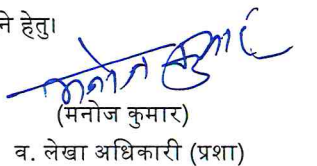 ने हेतु।
मनोज कुमार
(मनोज कुमार)
व. लेखा अधिकारी (प्रशा)